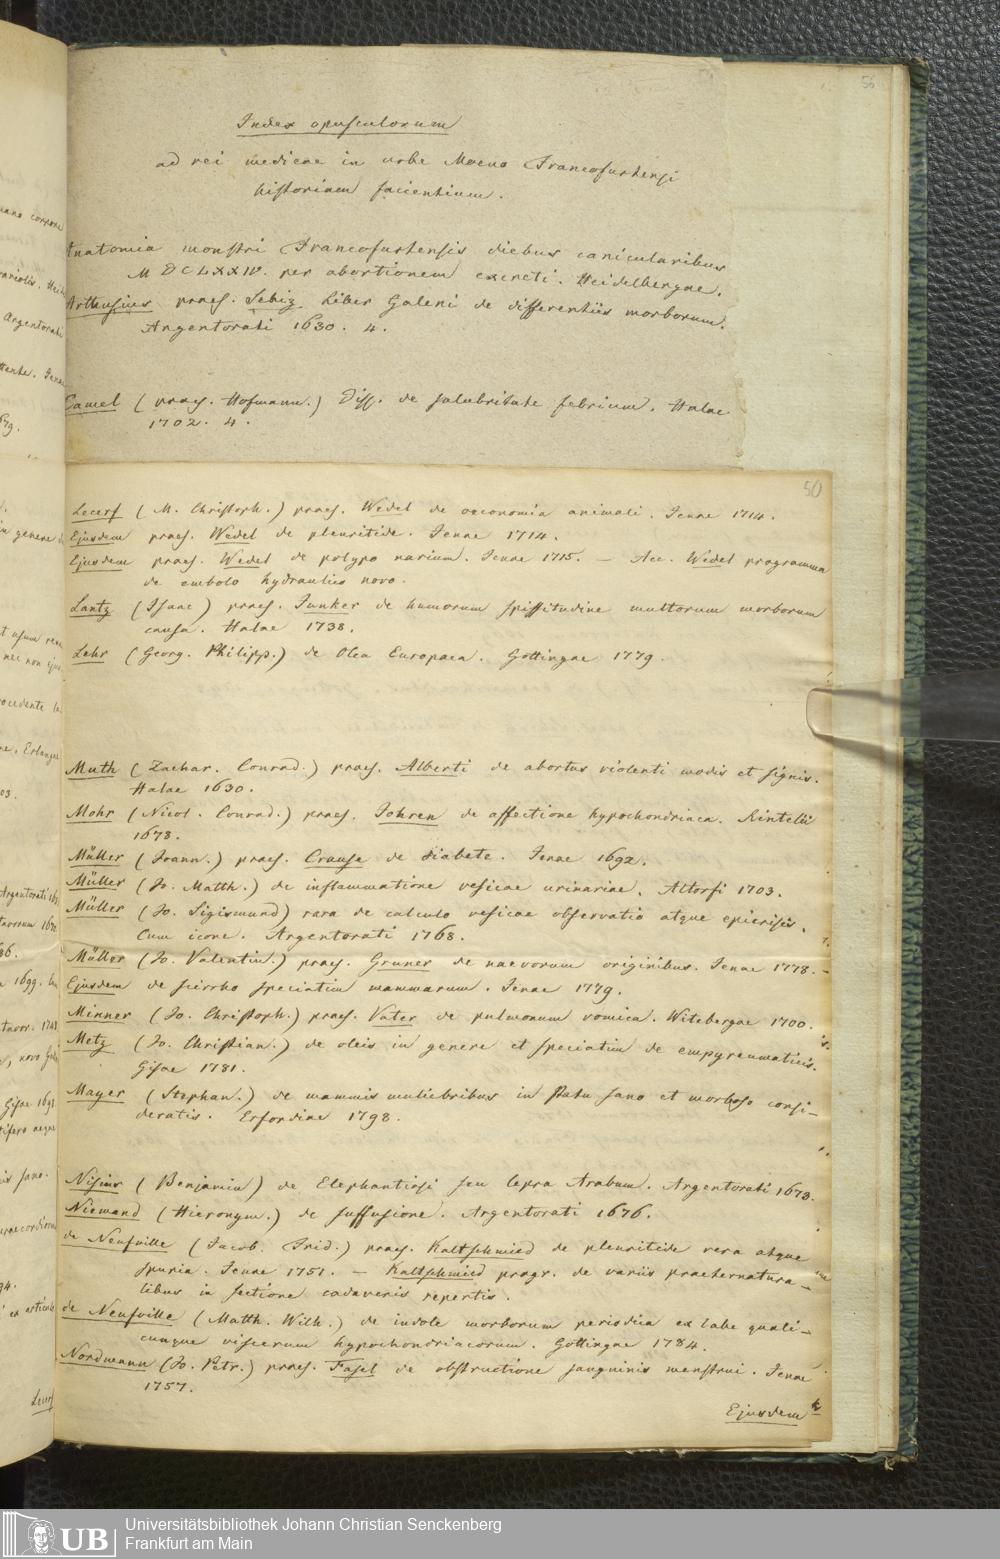 56
Index opusculorum
ad rei medicae in urbe Moeno Francofurtensi
historiam facientium.
Anatomia monstri Francofurtensis diebus canicularibus
MDCLXXIV. per abortionem excreti. Heidelbergae.
Arthusius praes. Sebiz Liber Galeni de differentiis morborum.
Argentorati 1630. 4.
Camel (praes. Hofmann.) Diss. de salubritate febrium. Halae
1702. 4.
50
Lecerf (M. Christoph.) praes. Wedel de oeconomia animali. Jenae 1714.
Ejusdem praes. Wedel de pleuritide. Jenae 1714.
Ejusdem praes. Wedel de polypo narium. Jenae 1715. — Acc. Wedel programma
de embolo hydraulico novo.
Lantz (Isaac) praes. Junker de humorum spissitudine multorum morborum
causa. Halae 1738.
Lehr (Georg. Philipp.) de Olea Europaea. Gottingae 1779.
Muth (Zachar. Conrad.) praes. Alberti de abortus violenti modis et signis.
Halae 1630.
Mohr (Nicol. Conrad.) praes. Johren de affectione hypochondriaca. Rintelii
1678.
Müller (Joann.) praes. Crause de diabete. Jenae 1692.
Müller (Jo. Matth.) de inflammatione vesicae urinariae. Altorfi 1703.
Müller (Jo. Sigismund) rara de calculo vesicae observatio atque epicrisis.
Cum icone. Argentorati 1768.
Müller (Jo. Valentin.) praes. Gruner de naevorum originibus. Jenae 1778.
Ejusdem de scirrho speciatim mammarum. Jenae 1779.
Minner (Jo. Christoph.) praes. Vater de pulmonum vomica. Witebergae 1700.
Metz (Jo. Christian.) de oleis in genere et speciatim de empyreumaticis.
Gisae 1781.
Mayer (Stephan.) de mammis muliebribus in statu sano et morboso consi-
deratis. Erfordiae 1798.
Nisius (Benjamin) de Elephantiasi seu lepra Arabum. Argentorati 1673.
Niemand (Hieronym.) de suffusione. Argentorati 1676.
de Neufville (Jacob. Frid.) praes. Kaltschmied de pleuritide vera atque
spuria. Jenae 1751. — Kaltschmied progr. de variis praeternatura-
libus in sectione cadaveris repertis.
de Neufville (Matth. Wilh.) de indole morborum periodica ex labe quali-
cunque viscerum hypochondriacorum. Gottingae 1784.
Nordmann (Jo. Petr.) praes. Fasel de obstructione sanguinis menstrui. Jenae
1757.
Ejusdem
UB
Universitätsbibliothek Johann Christian Senckenberg
Frankfurt am Main